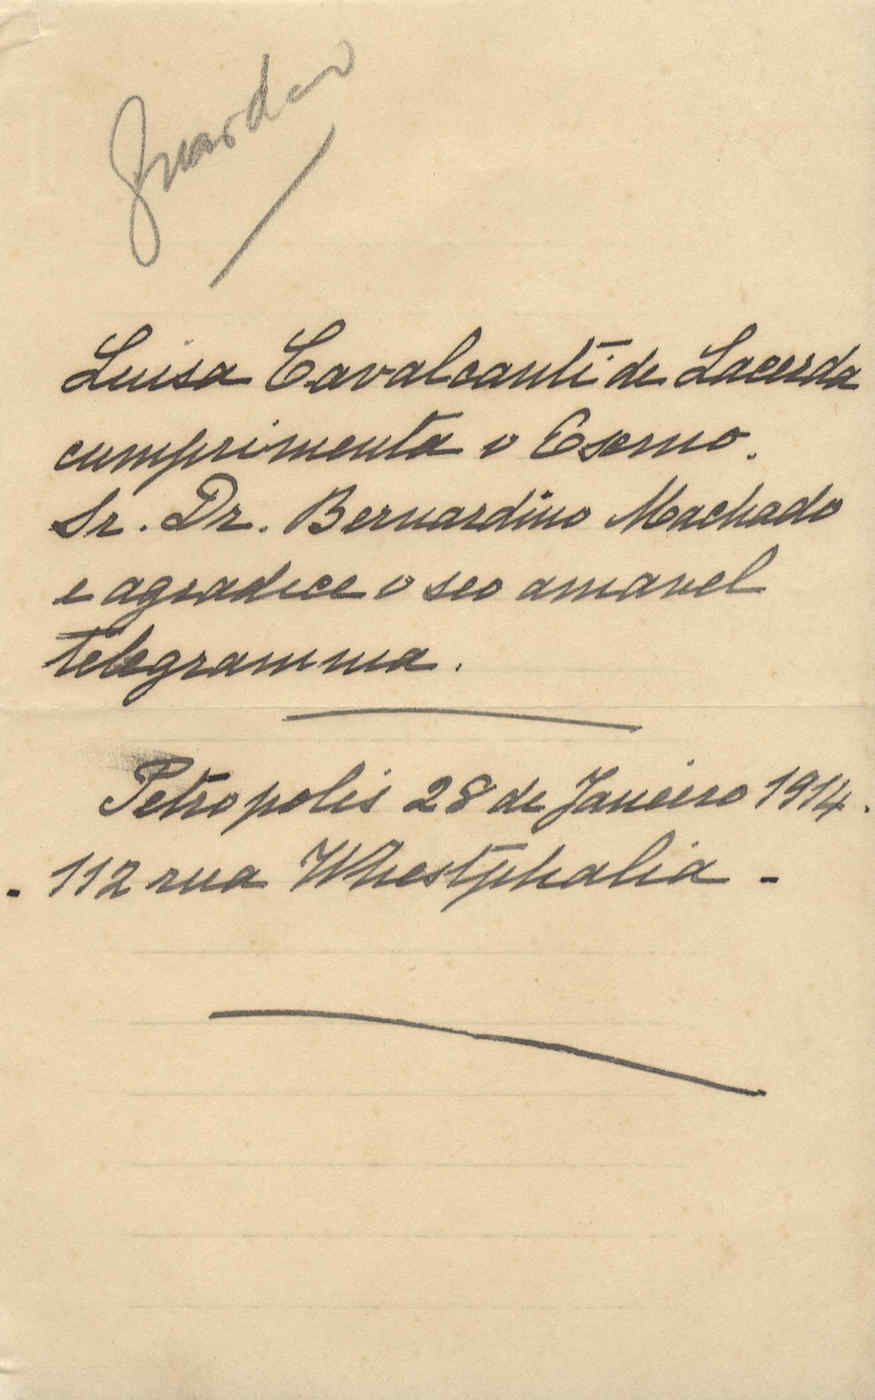 Guardar
Luisa Cavalcanti de Lacerda
cumprimenta o Exmo.
Sr. Dr. Bernardino Machado
e agradece o seo amavel
telegramma.
Petropolis 28 de Janeiro 1914.
- 112 rua Whestphalia -